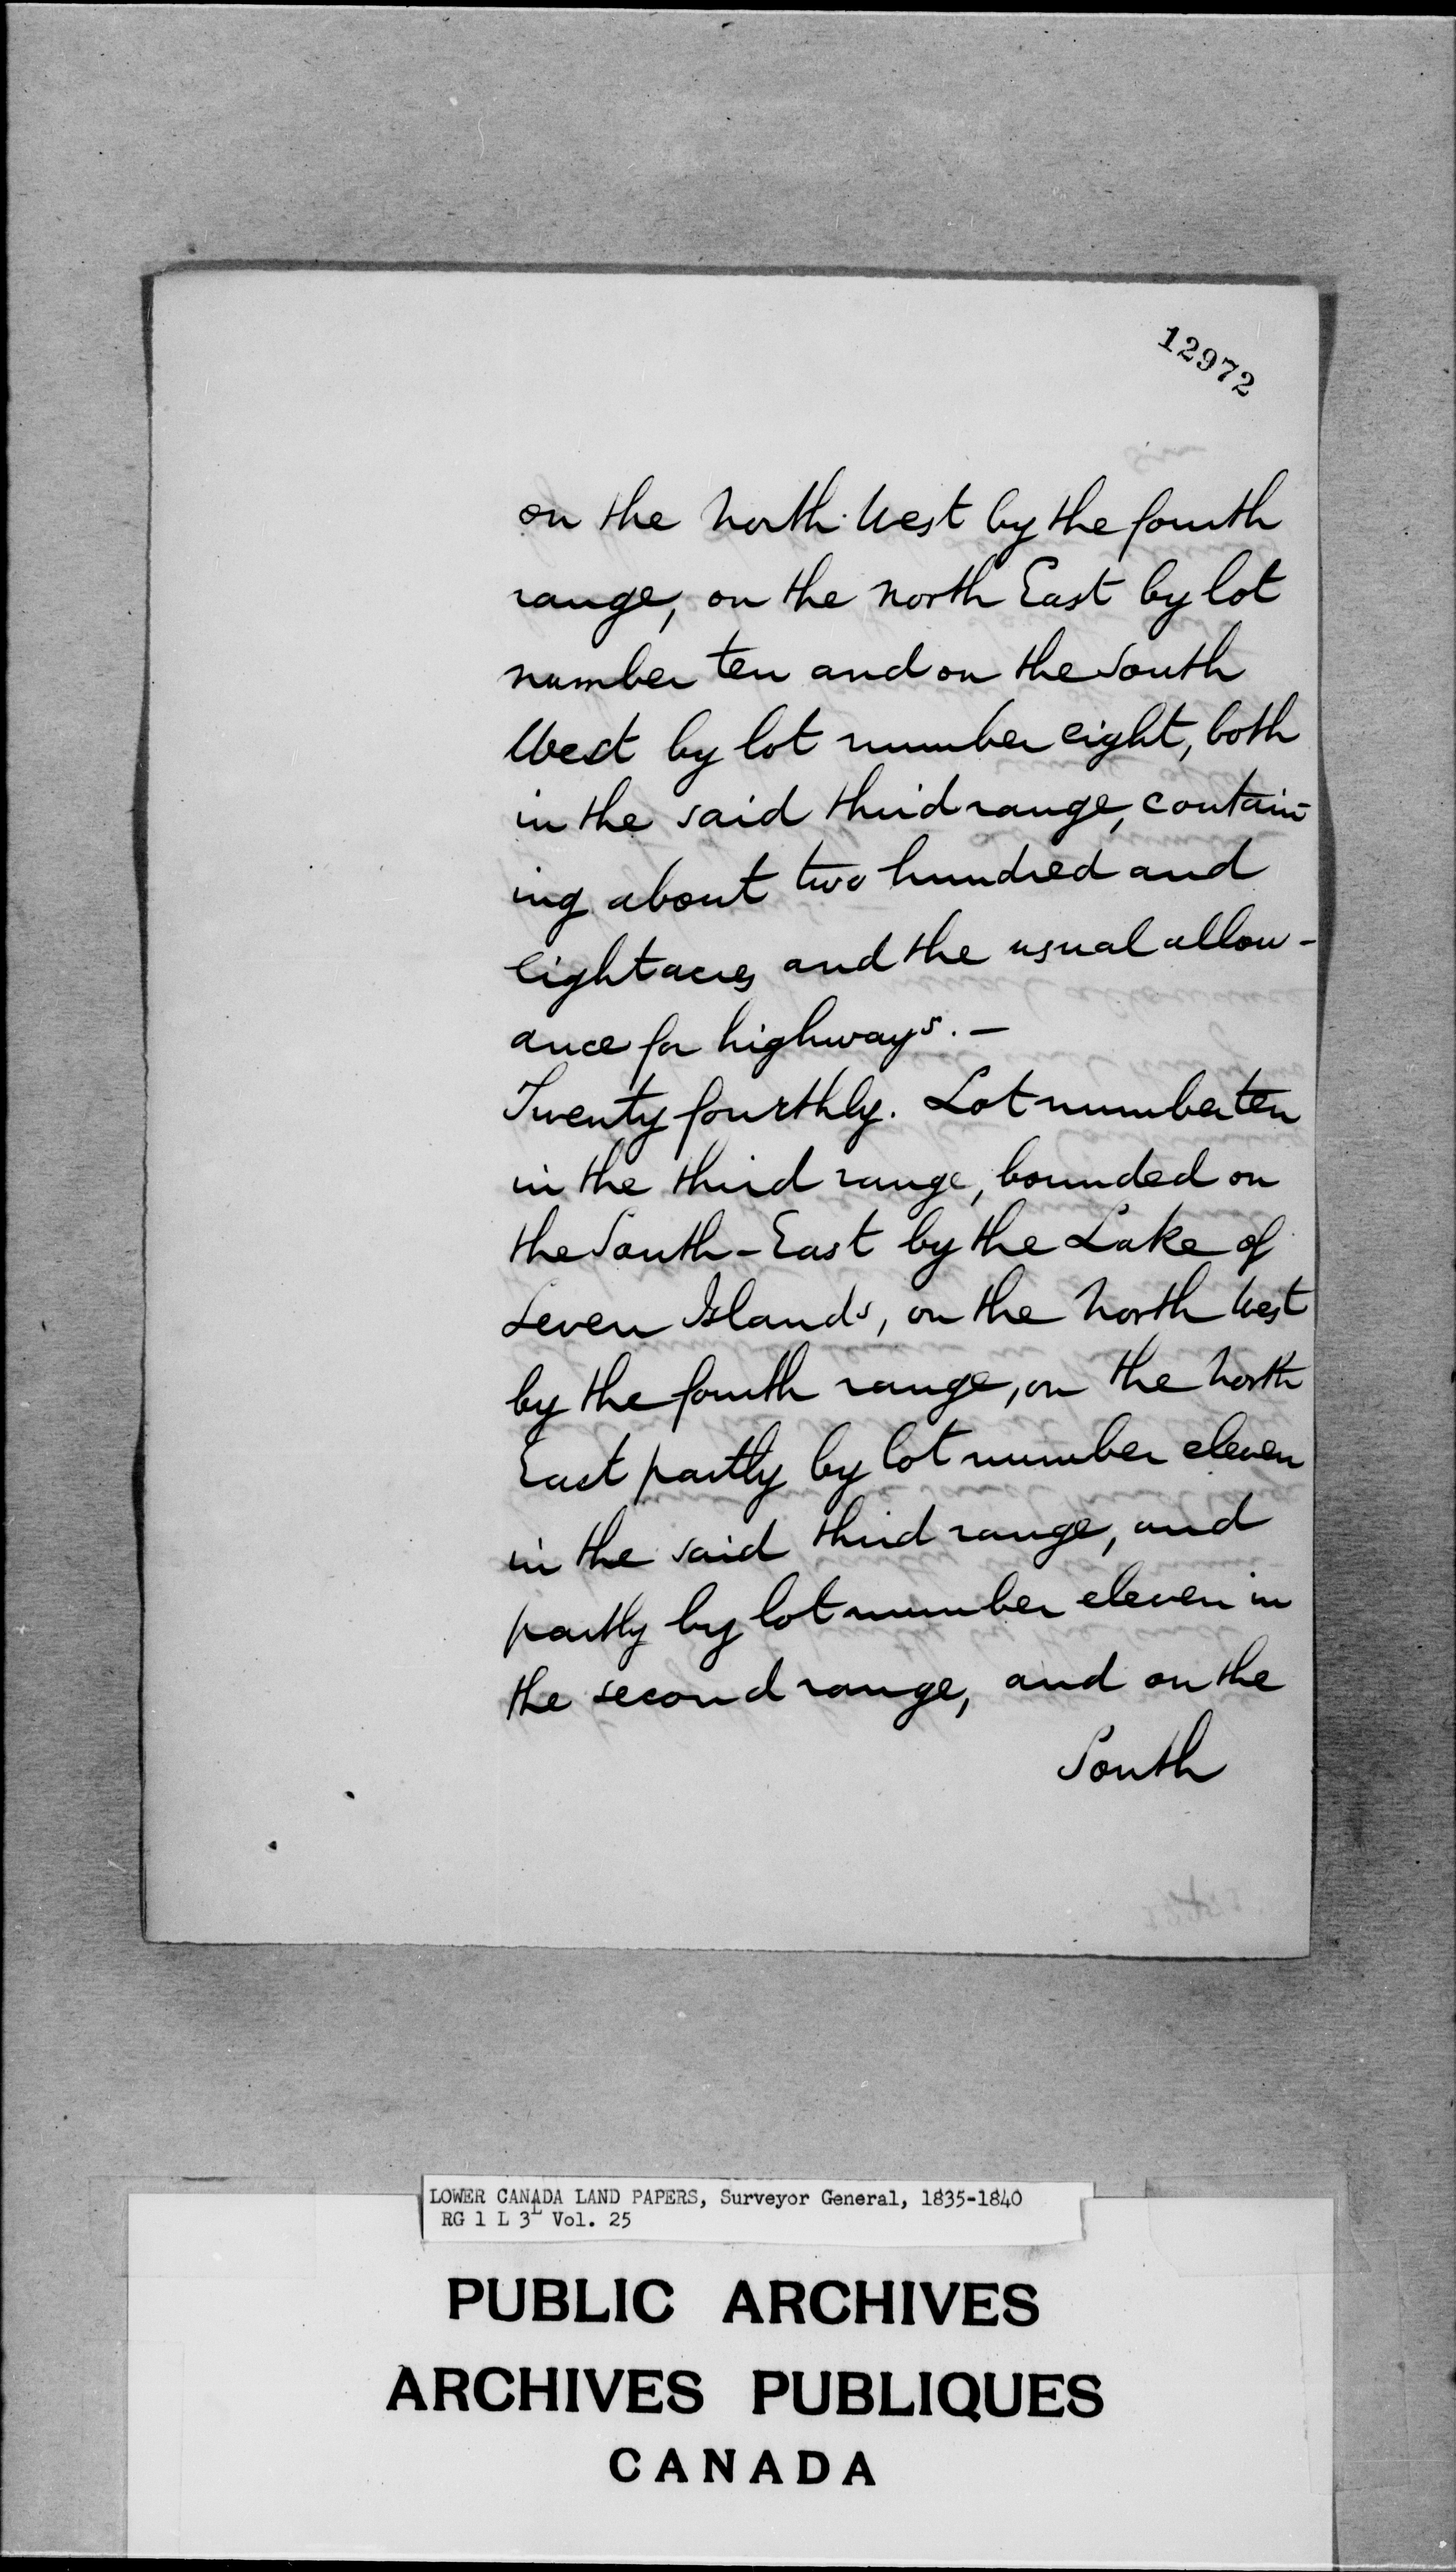 12972
on the North West by the fourth
range, on the north East by lot
number ten and on the South
West by lot number eight, both
in the said third range, contain-
ing about two hundred and
eight acres and the usual allow-
ance for highways. —
Twenty fourthly. Lot number ten
in the third range, bounded on
the South-East by the Lake of
Seven Islands, on the North West
by the fourth range, on the North
East partly by lot number eleven
in the said third range, and
partly by lot number eleven in
the second range, and on the
South
LOWER CANADA LAND PAPERS, Surveyor General, 1835-1840
RG 1 L 3L Vol. 25
PUBLIC ARCHIVES
ARCHIVES PUBLIQUES
CANADA